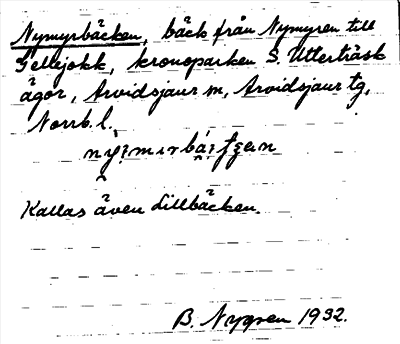 Nymyrbäcken, bäck från Nymyren till
Gellejokk, kronoparken S. Utterträsk
ägor, Arvidsjaur sn, Arvidsjaur tg,
Norrb. l.
Kallas även Lillbäcken.
B. Nygren 1932.